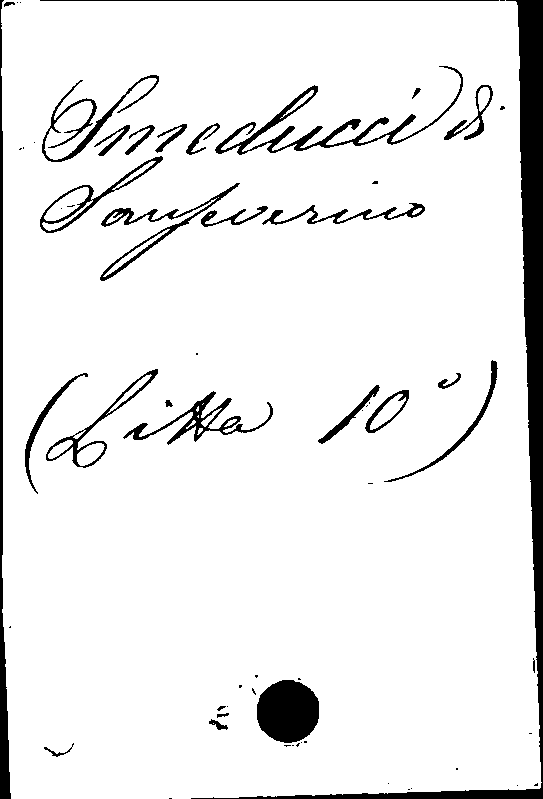 Smeducci di
Sanseverino
(Litta 10°)